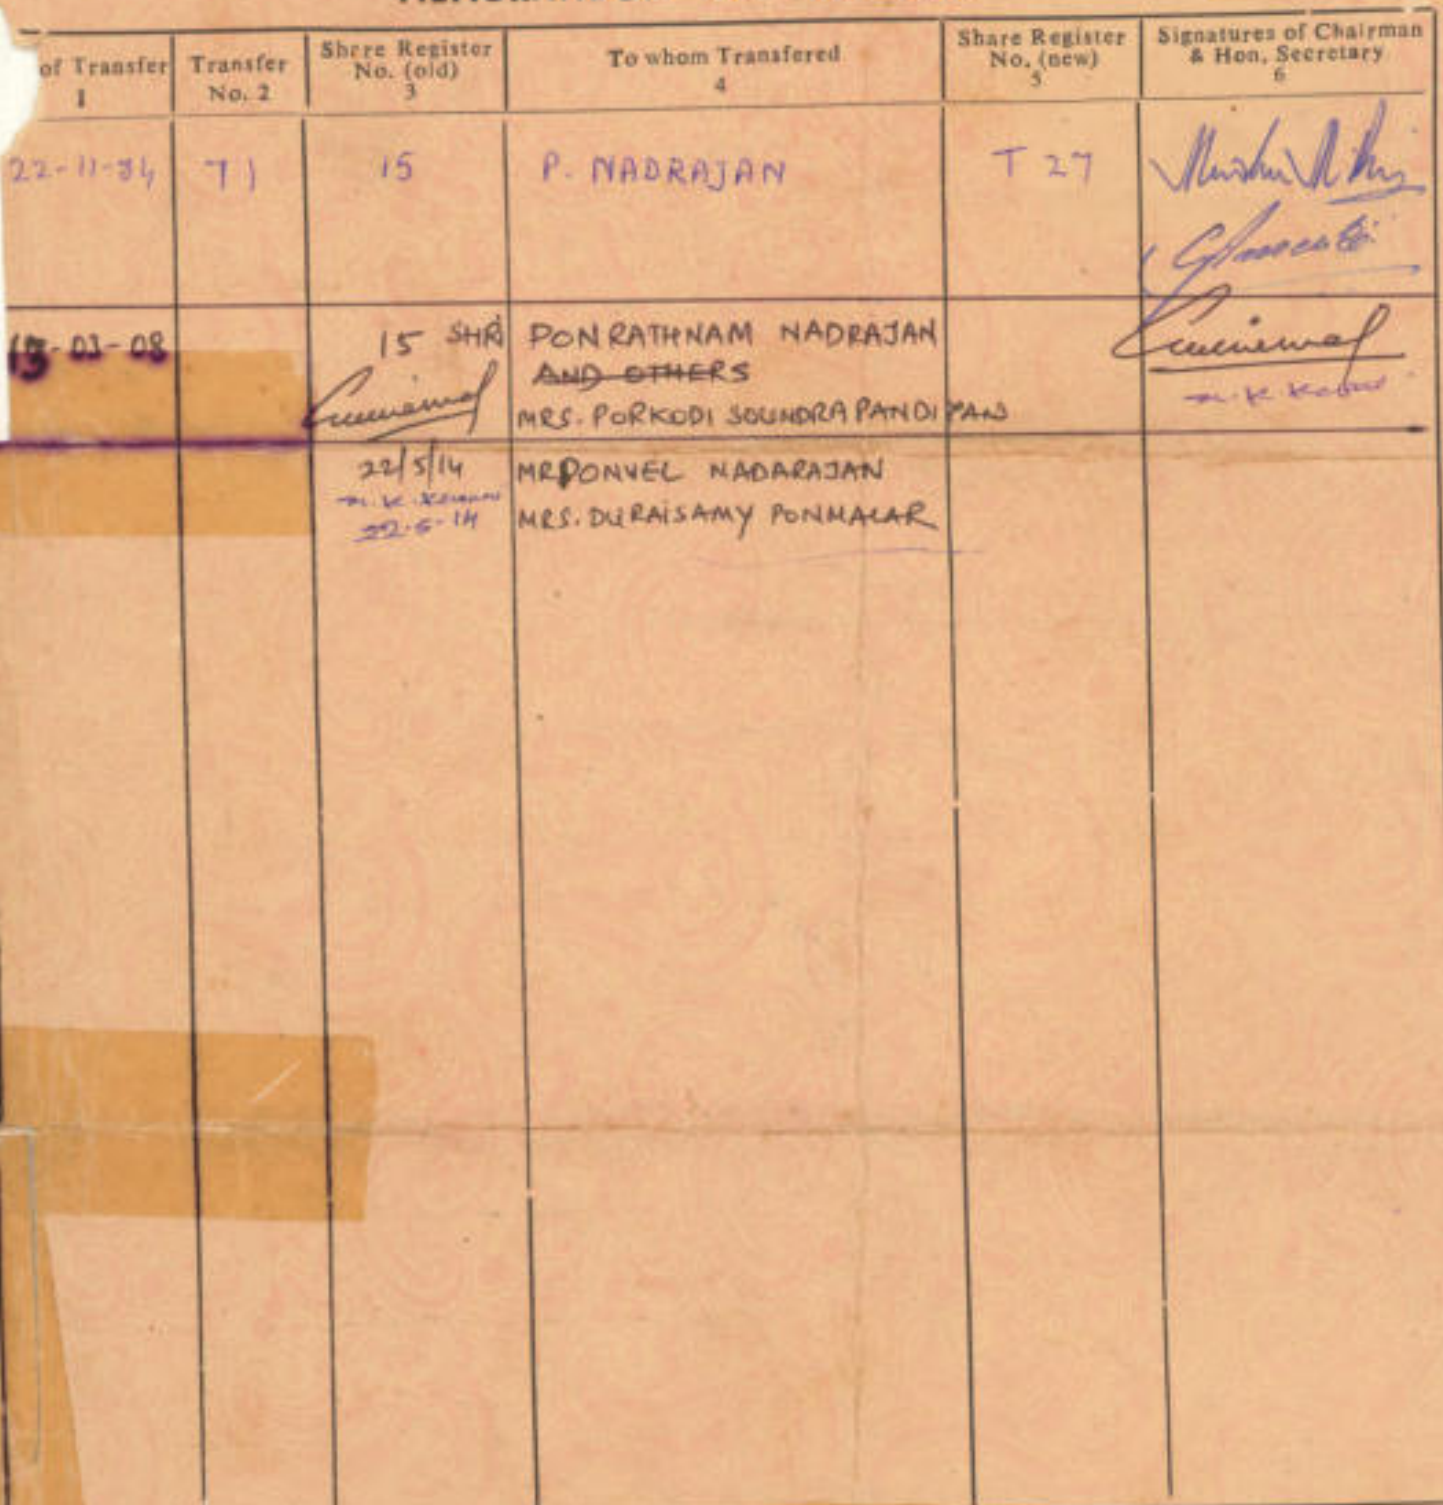 of Transfer 1
Transfer No. 2
Share Register No. (old) 3
To whom Transferred 4
Share Register No. (new) 5
Signatures of Chairman & Hon. Secretary 6
22-11-84 71 15 P. NADRAJAN T 27
-03-08 15 SHRI PONRATHNAM NADRAJAN
AND OTHERS
MRS. PORKODI SOUNDRAPANDIYAN
22/5/14 MR PONVEL NADARAJAN
22-5-14 MRS. DURAISAMY PONMALAR